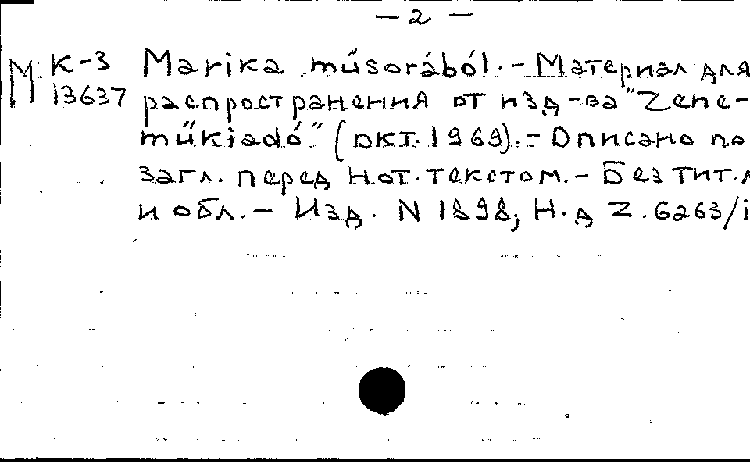 — 2 —
М К-3 Marika műsorából. – Материал для
13637 распространения от изд-ва "Zene-
műkiadó" (окт. 1969). – Описано по
загл. перед нот. текстом. – Без тит. л
и обл. – Изд. N 1898, Н. д Z. 6263/i